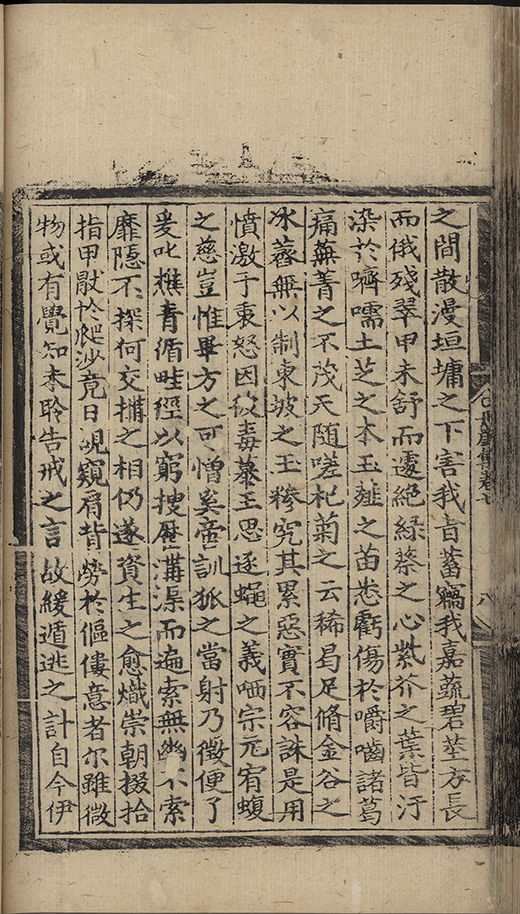 之間散漫垣墉之下害我旨蓄竊我嘉蔬碧莖方長
而俄殘翠甲未舒而遽絕綠蔡之心紫芥之葉皆汙
染於嚌嚅土芝之本玉薤之苗悉虧傷於嚼嚙諸葛
痛蕪菁之不茂天随嗟杞菊之云稀曷足脩金谷之
冰虀無以制東坡之玉糝究其累惡實不容誅是用
憤激于衷怒因彼毒慕王思逐蠅之義哂宗元宥蝮
之慈豈惟畢方之可憎奚啻訓狐之當射乃徵便了
爰叱樵青循畦徑以窮搜歷溝渠而遍索無幽不索
靡隱不探何交搆之相仍遂資生之愈熾崇朝掇拾
指甲厭扵爬沙竟日覘窺肩背勞於傴僂意者尔雖微
物或有覺知未聆告戒之言故緩遁逃之計自今伊
集卷七
八